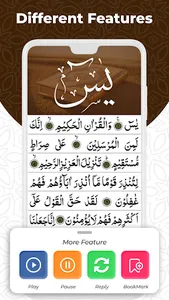 Different Features
يٰسٓ
يٰسٓ ۝ وَالْقُرْاٰنِ الْحَكِيْمِ ۝ اِنَّكَ
لَمِنَ الْمُرْسَلِيْنَ ۝ عَلٰى صِرَاطٍ
مُّسْتَقِيْمٍ ۝ تَنْزِيْلَ الْعَزِيْزِ الرَّحِيْمِ ۝
لِتُنْذِرَ قَوْمًا مَّاۤ اُنْذِرَ اٰبَآؤُهُمْ فَهُمْ
غٰفِلُوْنَ ۝ لَقَدْ حَقَّ الْقَوْلُ عَلٰۤى
اَكْثَرِهِمْ فَهُمْ لَا يُؤْمِنُوْنَ ۝ اِنَّا جَعَلْنَا
More Feature
Play Pause Reply BookMark